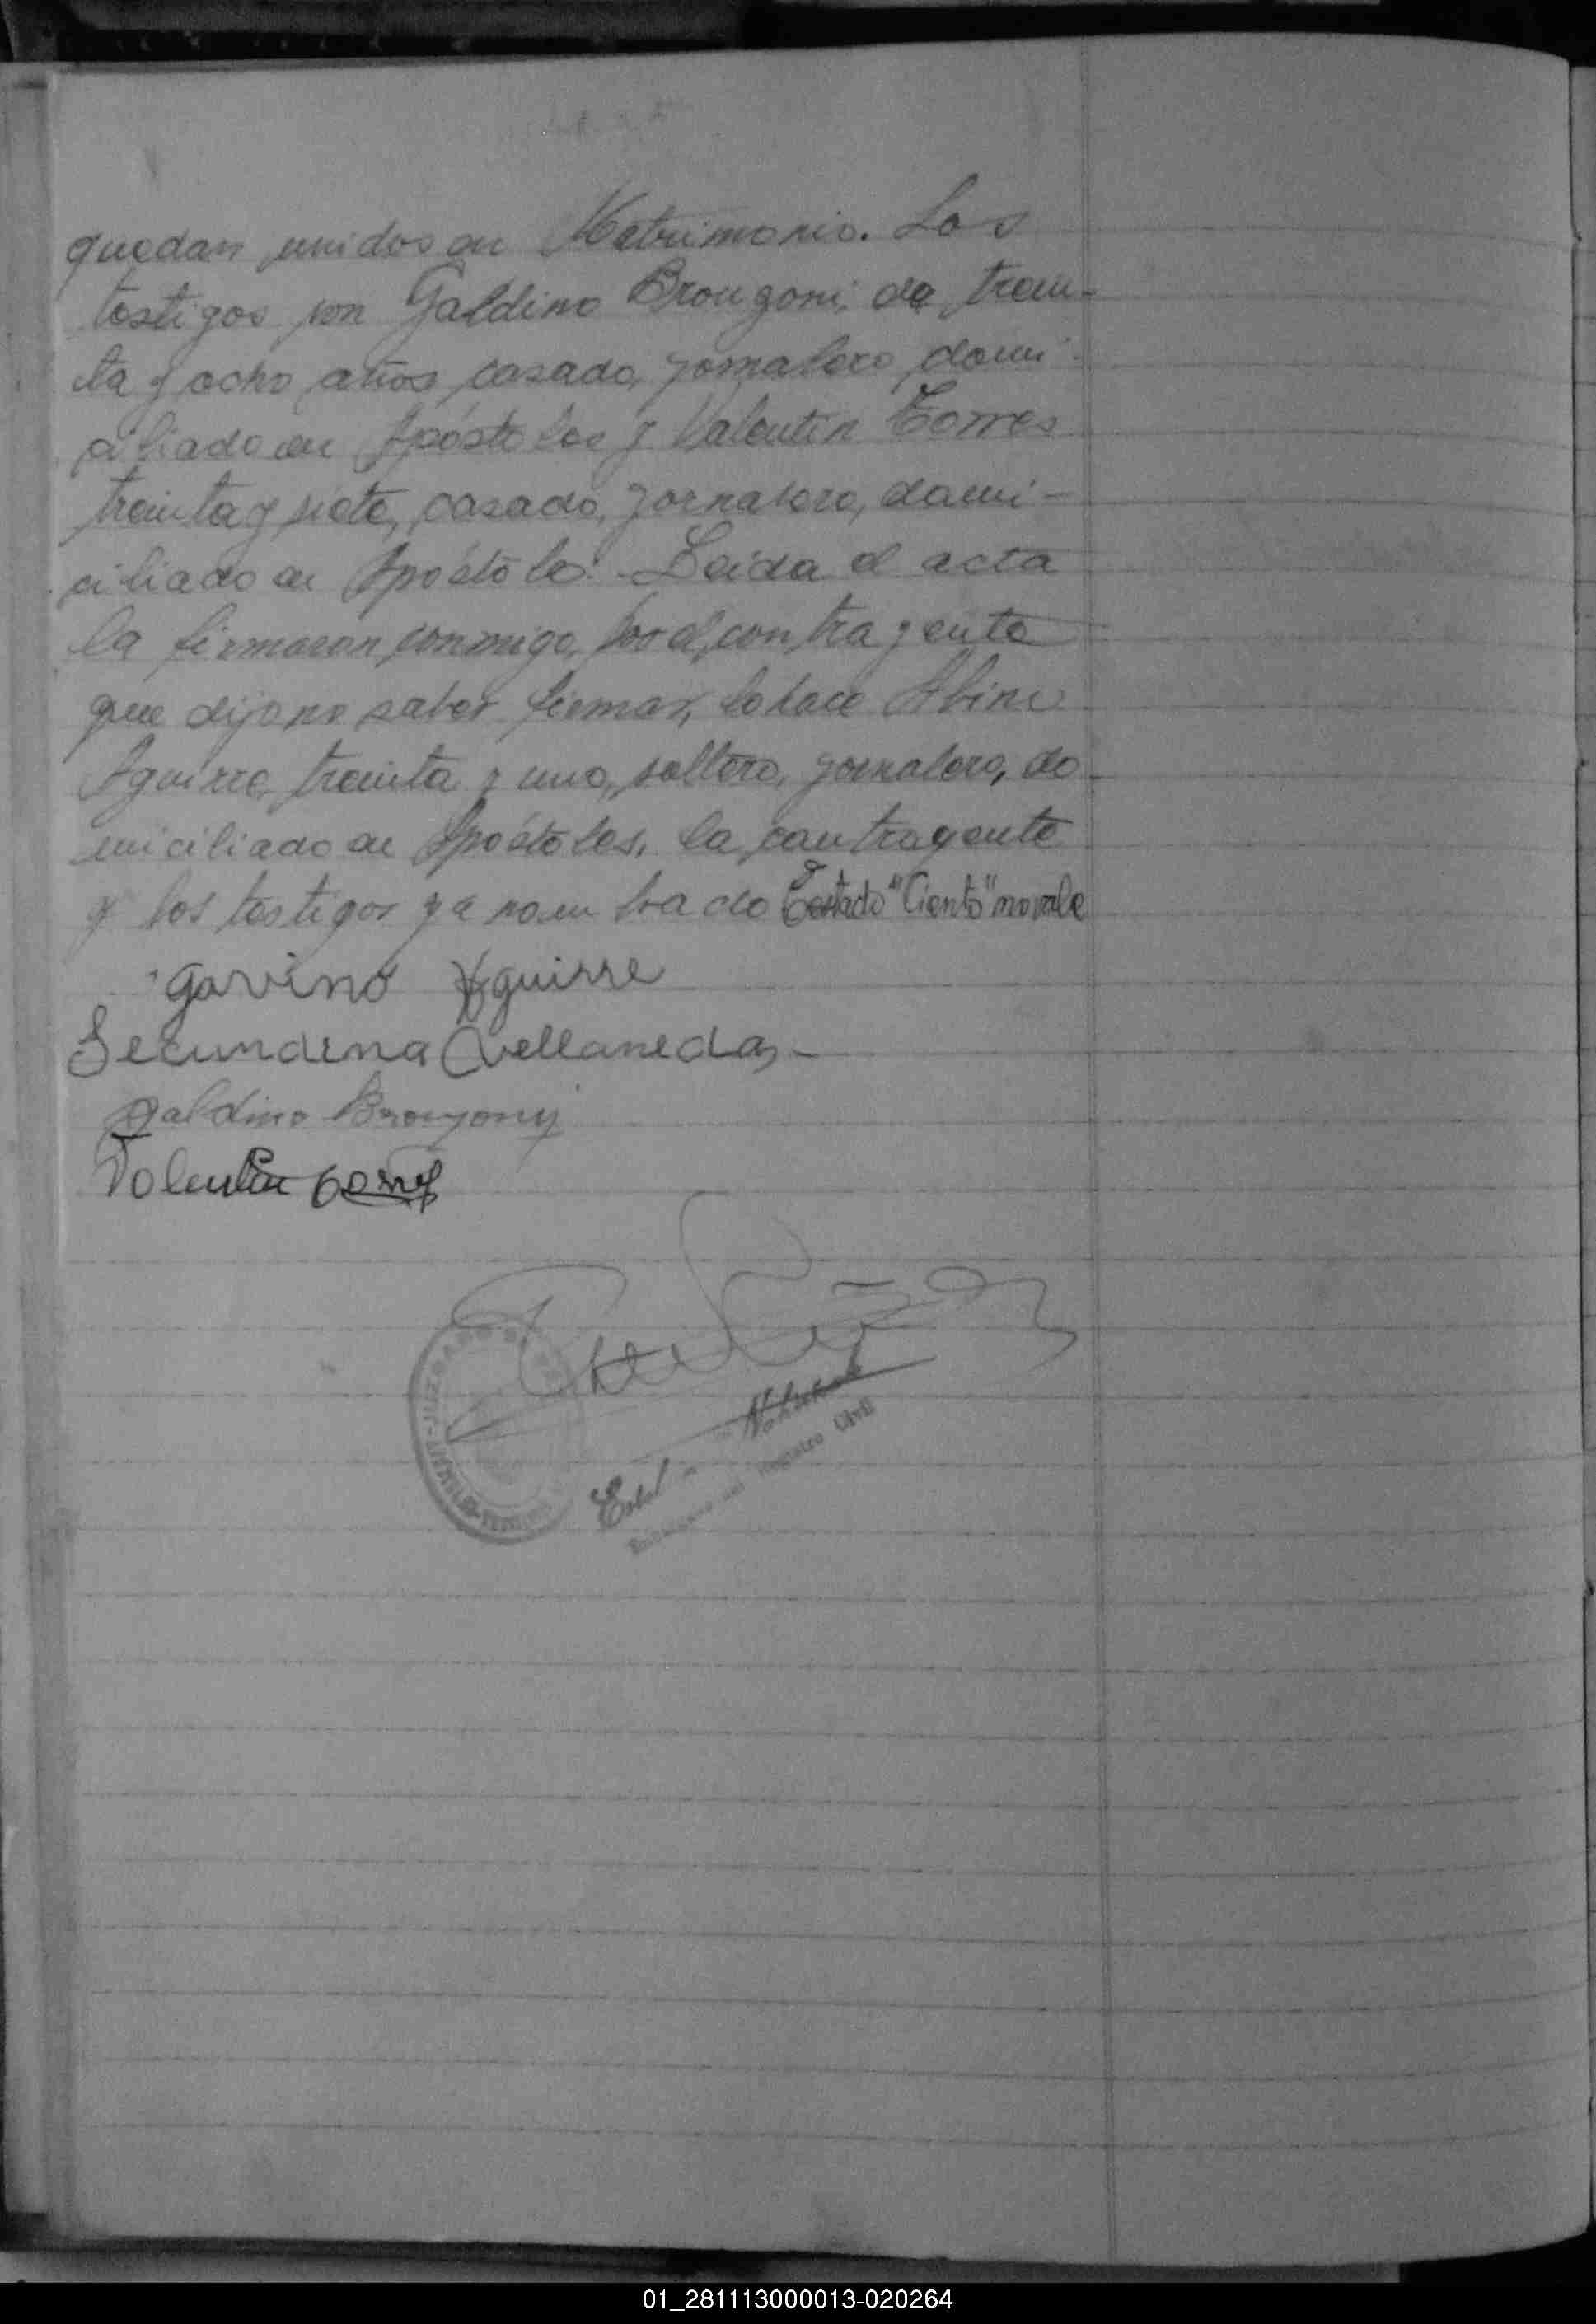 quedan unidos en Matrimonio. Los
testigos son Galdino Brougoni, de trein-
ta y ocho años casado, jornalero domi-
ciliado en Apóstoles y Valentin Torres
treinta y siete, casado, jornalero, domi-
ciliado en Apóstoles. Leida el acta
la firmaron conmigo, por el contrayente
que dijo no saber firmar, lo hace Abino
Aguirre, treinta y uno, soltero, jornalero, do-
miciliado en Apóstoles, la contrayente
y los testigos ya nombrado Testado "Ciento" no vale
Gavino Aguirre
Secundina Avellaneda,-
Galdino Brougony
Valentin Torres
JUZGADO DE
Registro Civil
01_281113000013-020264